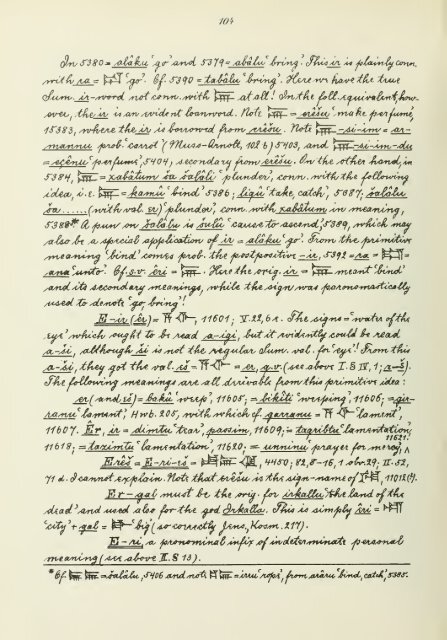 104
In 5380 = alâku 'go' and 5379 = abâlu 'bring'. This ir is plainly conn.
with ra = 'go'. Cf. 5390 = tabâlu 'bring'. Here we have the true
Sum. ir-word not conn. with at all! In the foll. equivalent, how-
ever, the ir is an evident loanword. Note = erêšu 'make perfume,'
15383, where the ir is borrowed from erêšu. Note -si-im = ar-
mannu prob. 'carrot' (Muss-Arnolt, 102 b) 5403, and -si-im-du
= 'perfume', 5404, secondary from erêšu. On the other hand, in
5384, = xabâtum ša šalâli 'plunder', conn. with the following
idea, i.e. = kamû 'bind' 5386; liqû 'take, catch', 5387; šalâlu
ša ...... (with val. er) 'plunder', conn. with xabâtum in meaning,
5388* A pun on šalâlu is šulû 'cause to ascend', 5389, which may
also be a special application of ir = alâku 'go'. From the primitive
meaning 'bind' comes prob. the postpositive -ir, 5392 = ra = =
ana 'unto'. Cf. s.v. êri = . Here the orig. ir = meant 'bind'
and its secondary meanings, while the sign was paronomastically
used to denote 'go, bring'!
E-ir (êr) = , 11601; V. 22, 6 r. The signs = 'water of the
eye' which ought to be read a-igi, but it evidently could be read
a-ši, although ši is not the regular Sum. val. for 'eye'! From this
a-ši, they got the val. iš = = er, q.v. (see above I. § IV, 1; a-š).
The following meanings are all derivable from this primitive idea:
er (and iš) = bakû 'weep', 11605; = bikîti 'weeping', 11606; = gir-
ranu 'lament', Hwb. 205, with which cf. garranu = 'lament',
11607. Êr, ir = dimtu 'tear', passim, 11609; = tagribtu 'lamentation,'
11618; = tazimtu 'lamentation', 11620. = unninu 'prayer for mercy,' 11621.
Erêš = E-ri-eš = , 4450; 82, 8-16, 1 obv. 29; II. 52,
71 d. I cannot explain. Note that erêšu is the sign-name of , 11012(?).
Er-gal must be the orig. for irkallu 'the land of the
dead' and used also for the god Irkalla. This is simply êri =
'city' + gal = 'big' (so correctly Jens, Kosm. 217).
E-ri, a pronominal infix of indeterminate personal
meaning (see above II. § 13).
* Cf. = šalâlu, 5406 and note = irru 'rope', from arâru 'bind, catch', 5385.